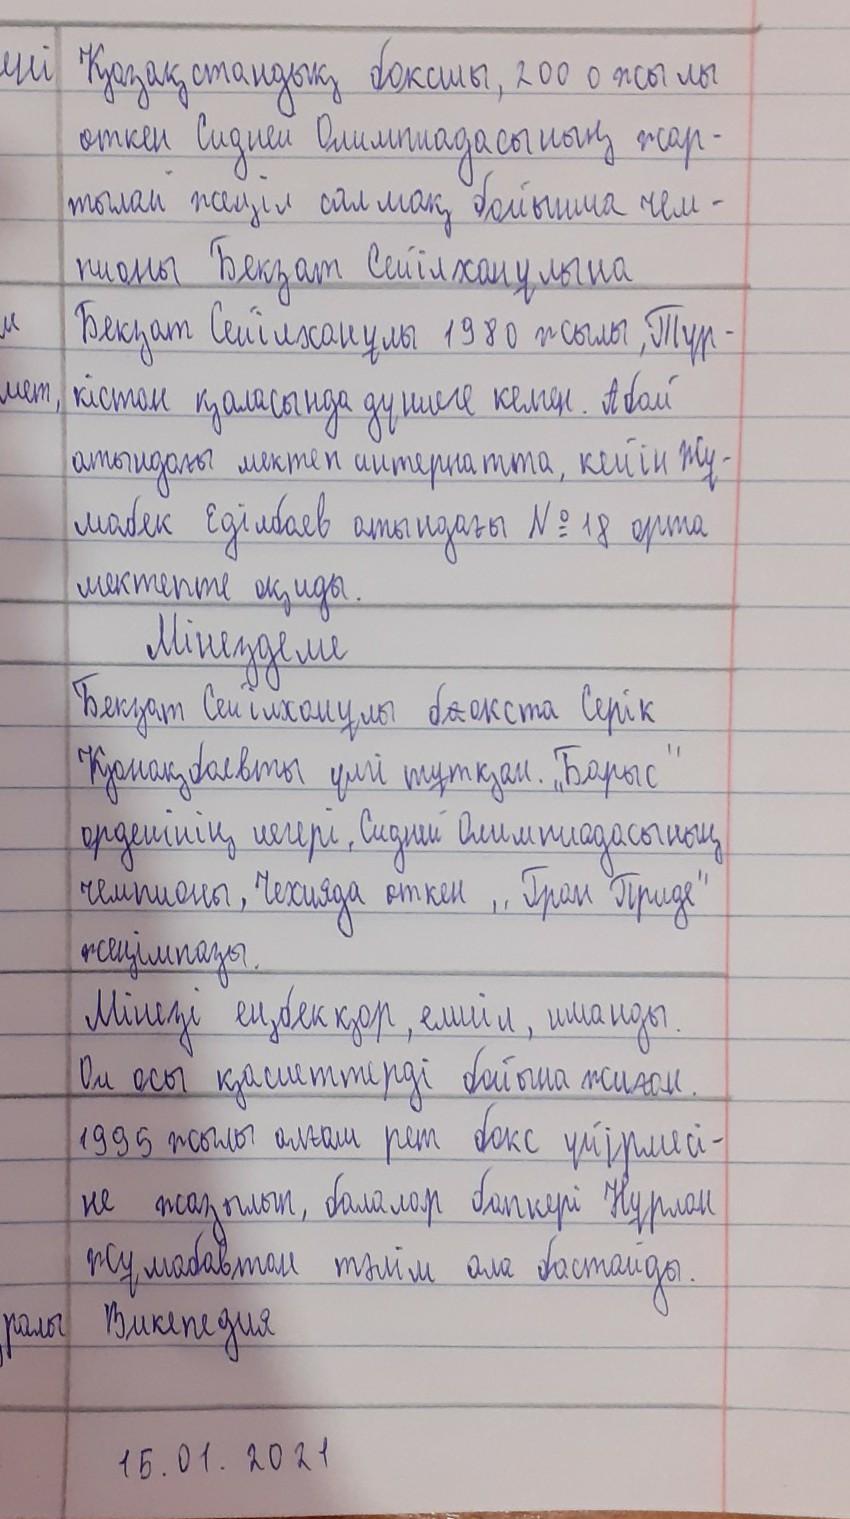 ені Қазақстандық боксшы, 2000 жылы
өткен Сидней Олимпиадасының жар-
тылай жеңіл салмақ бойынша чем-
пионы Бекзат Сейілханұлына
м Бекзат Сейілханұлы 1980 жылы, Түр-
мет, кістан қаласында дүниеге келген. Абай
атындағы мектеп интернатта, кейін Жұ-
мабек Еділбаев атындағы № 18 орта
мектепте оқиды.
Мінездеме
Бекзат Сейілханұлы бокста Серік
Қонақбаевты үлгі тұтқан. „Барыс"
орденінің иегері, Сидней Олимпиадасының
чемпионы, Чехияда өткен „Гран Приде"
жеңімпазы.
Мінезі еңбекқор, елшіл, иманды.
Ол осы қасиеттерді бойына жиған.
1995 жылы алғаш рет бокс үйірмесі-
не жазылып, балалар бапкері Нұрлан
Жұмабавтан тәлім ала бастайды.
ралы Википедия
15.01.2021